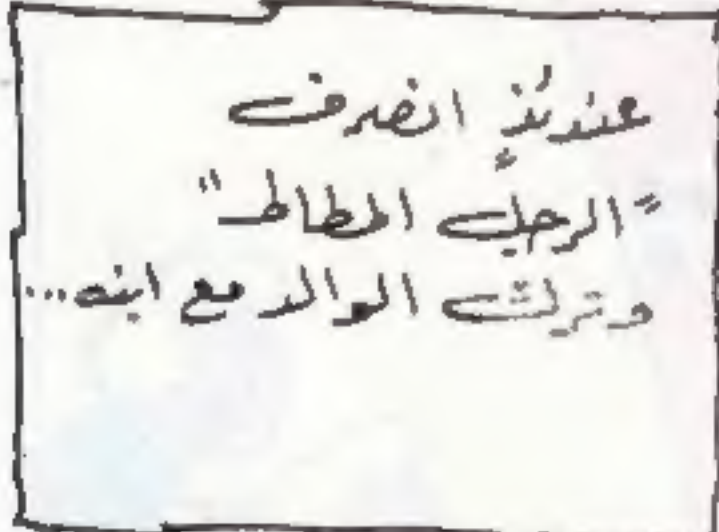 عندئذٍ انصرف
"الرجل المطاط"
وترك الوالد مع ابنه...